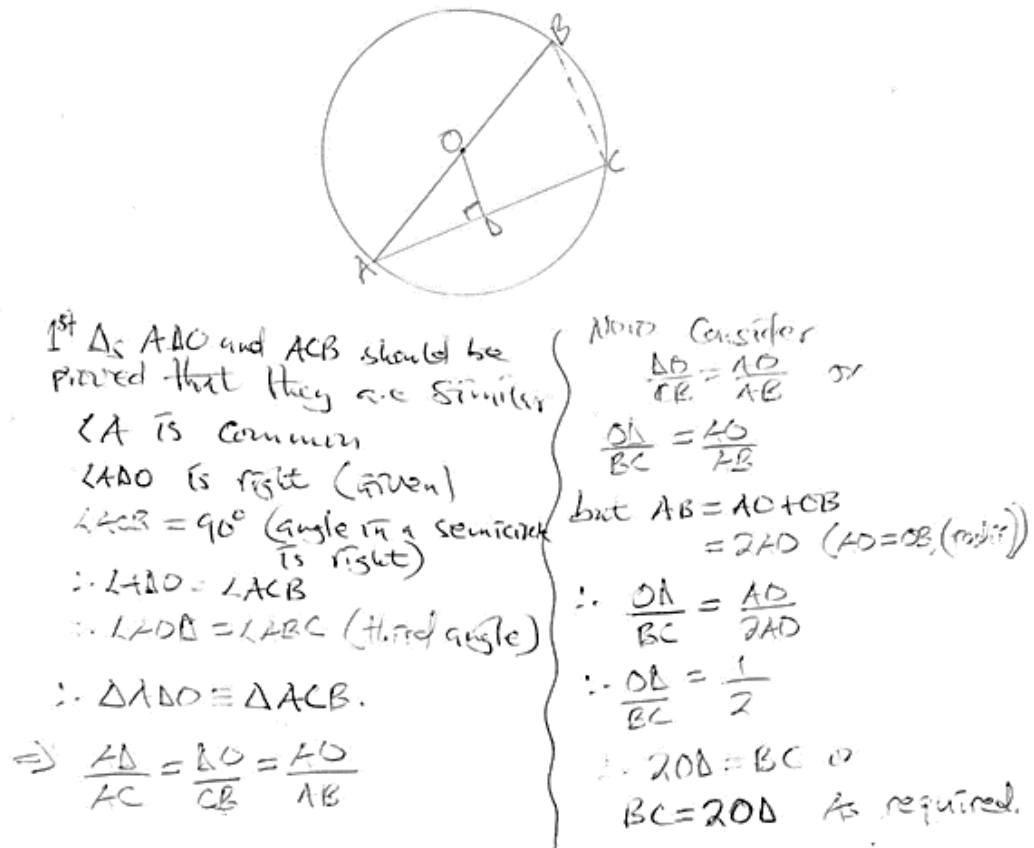 B
O
C
D
A
1st Δs ADO and ACB should be
proved that they are similar
∠A is common
∠ADO is right (given)
∠ACB = 90° (angle in a semicircle
is right)
∴ ∠ADO = ∠ACB
∴ ∠AOD = ∠ABC (third angle)
∴ ΔADO ≡ ΔACB.
⇒ AD/AC = DO/CB = AO/AB
Now Consider
DO/CB = AO/AB or
OD/BC = AO/AB
but AB = AO + OB
= 2AO (AO = OB (radii))
∴ OD/BC = AO/2AO
∴ OD/BC = 1/2
∴ 2OD = BC or
BC = 2OD As required.